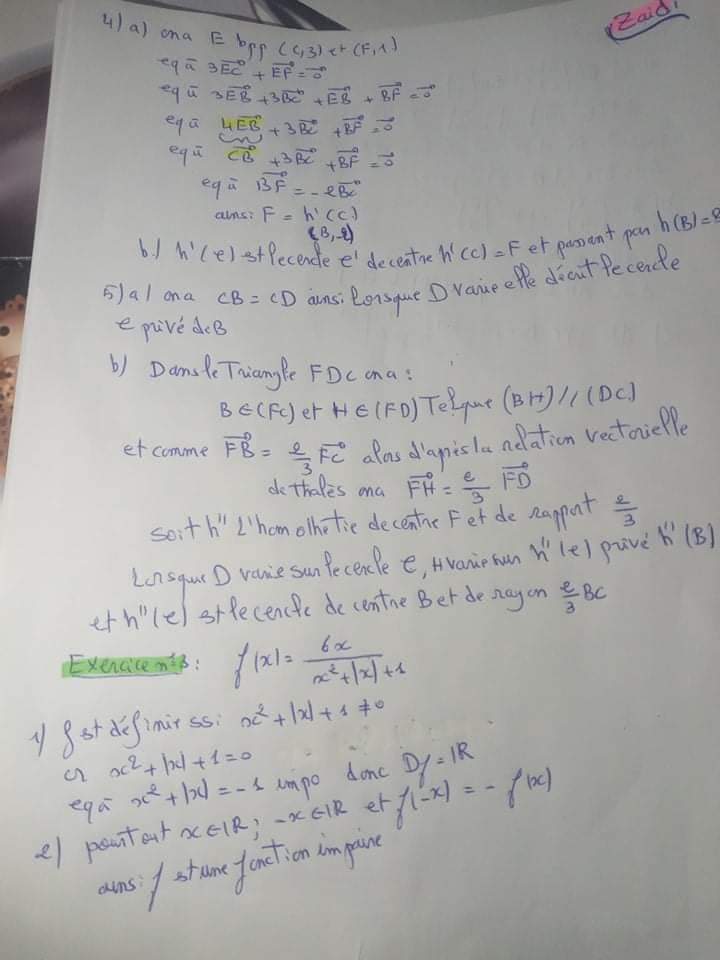 Zaidi
4) a) ona E bpp (C,3) et (F,1)
eq à 3EC + EF = 0
eq à 3EB + 3BC + EB + BF = 0
eq à 4EB + 3BC + BF = 0
eq à CB + 3BC + BF = 0
eq à BF = -2BC
ainsi F = h'(C)
(B,-2)
b) h'(C) est le cercle C' de centre h'(C) = F et passant par h(B) = B
5) a/ ona CB = CD ainsi Lorsque D varie elle décrit le cercle
C privé de B
b) Dans le Triangle FDC ona :
B ∈ (FC) et H ∈ (FD) Tel que (BH) // (DC)
et comme FB = 2/3 FC alors d'après la relation vectorielle
de thalès ona FH = 2/3 FD
soit h'' L'homothétie de centre F et de rapport 2/3
Lorsque D varie sur le cercle C, H varie sur h''(C) privé h''(B)
et h''(C) est le cercle de centre B et de rayon 2/3 BC
Exercice n°3 : f(x) = 6x / (x² + |x| + 1)
1) f est définie ssi x² + |x| + 1 ≠ 0
or x² + |x| + 1 = 0
eq à x² + |x| = -1 impo donc Df = IR
2) pour tout x ∈ IR ; -x ∈ IR et f(-x) = - f(x)
ainsi f est une fonction impaire